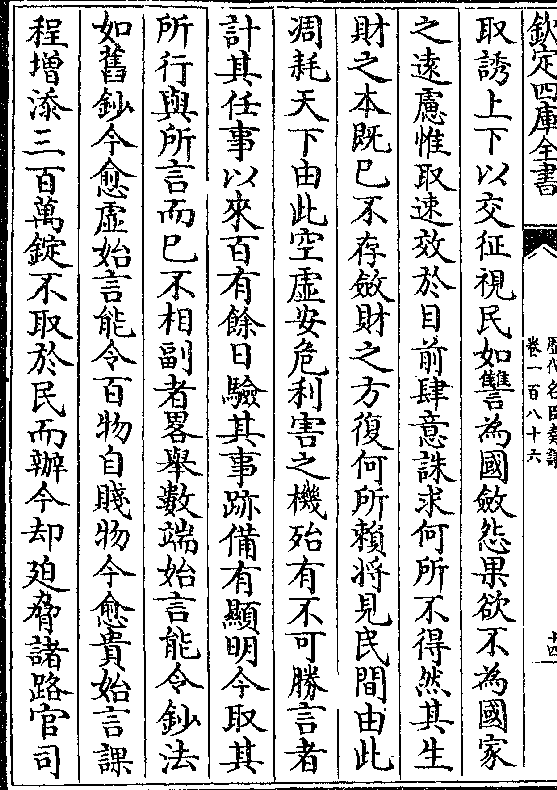 欽定四庫全書
歴代名臣奏議
卷一百八十六
十四
取誘上下以交征視民如讐為國斂怨果欲不為國家
之遠慮惟取速效於目前肆意誅求何所不得然其生
財之本既已不存斂財之方復何所賴將見民間由此
凋耗天下由此空虛安危利害之機殆有不可勝言者
計其任事以來百有餘日驗其事跡備有顯明今取其
所行與所言而已不相副者畧舉數端始言能令鈔法
如舊鈔今愈虛始言能令百物自賤物今愈貴始言課
程增添三百萬錠不取於民而辦今却廹脅諸路官司